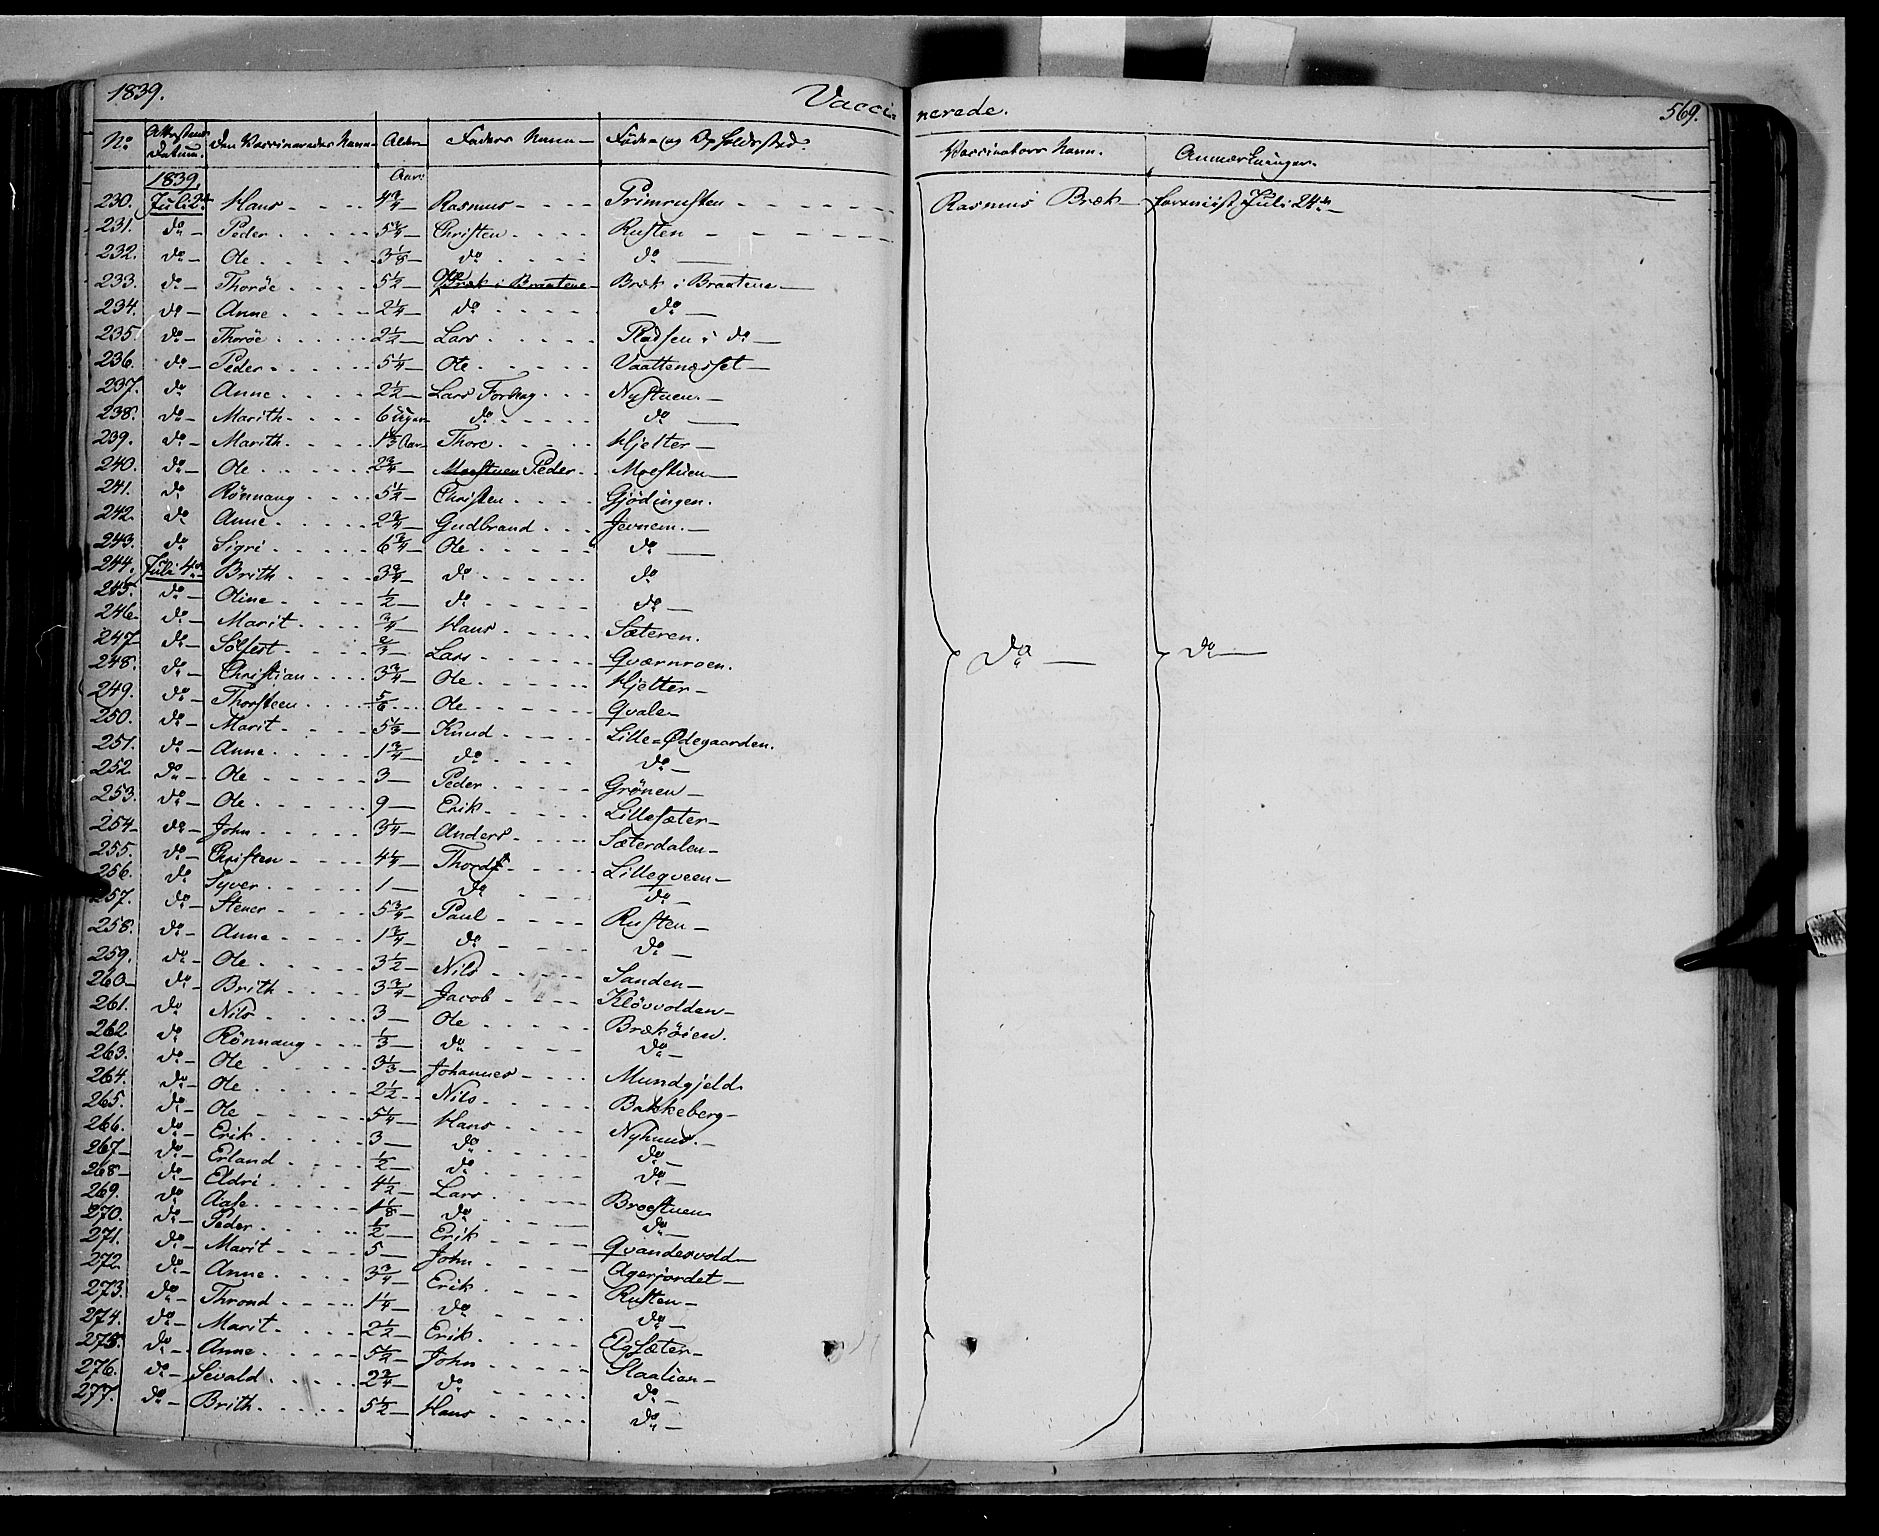 1839. Vacci- nerede. 569.
No. Attestens Datum. Den Vaccineredes Navn Alder Faders Navn Føde- og Opholdssted. Vaccinateurs Navn. Anmærkninger.
1839. Aar
230. Juli 2 Hans 4 3/4 Rasmus Primrusten Rasmus Bræk Juli 24de
231. do Peder 5 3/4 Christen Rusten
232. do Ole 3 1/8 do do
233. do Thorøe 5 1/2 Ole Bræk i Braatene Bræk i Braatene
234. do Anne 2 1/4 do do
235. do Thorøe 2 1/2 Lars Pladsen i do
236. do Peder 5 1/4 Ole Vaattenæsset
237. do Anne 2 1/2 Lars Forbrg Nystuen.
238. do Marith 6 Uger do do
239. do Marith 1 2/3 Aar Thore Hjelter
240. do Ole 2 3/4 Moestuen Peder Moestuen
241. do Rönnaug 5 1/2 Christen Gjödingen.
242. do Anne 2 3/4 Gudbrand Jevnem.
243. do Sigri 6 3/4 Ole do
244. Juli 4de Brith 3 3/4 do do
245. do Oline 1/2 do do
246. do Marit 3/4 Hans Sæteren.
247 do Solfest 2/3 Lars Qværnroen. do do
248. do Christian 3 3/4 Ole Hjelter
249. do Thorsteen 5/6 Ole Qvale
250. do Marit 5 1/3 Knud Lille-Ødegaarden.
251. do Anne 1 3/4 do do
252 do Ole 3 Peder Grönen
253. do Ole 9 Erik Lillesæter
254 do John 3 1/4 Anders Sæterdalen
255. do Christen 4 1/4 Thord Lilleqveen
256. do Syver 1 do do
257. do Stener 5 3/4 Paul Rusten
258. do Anne 1 3/4 do do
259. do Ole 3 1/2 Nils Sanden
260 do Brith 3 3/4 Jacob Klövvolden
261. do Nils 3 Ole Brækøien.
262. do Rönnaug 1/3 do do
263. do Ole 3 1/3 Johannes Mundgjeld
264. do Ole 2 1/2 Nils Bakkeberg
265. do Ole 5 1/4 Hans Nyhuus.
266. do Erik 3 do do
267 do Erland 1/2 do do
268 do Eldri 4 1/2 Lars Broestuen
269. do Aase 1 1/8 do do
270. do Peder 1/2 Erik Qvandesvold
271. do Marit 5 John Agerjordet
272. do Anne 3 3/4 Erik Rusten
273. do Thrond 1 1/4 do do
274. do Marit 2 1/2 Erik Elgsæter
275. do Anne 5 1/2 John Slaalien
276. do Sevald 2 3/4 do do
277. do Brith 5 1/2 Hans do